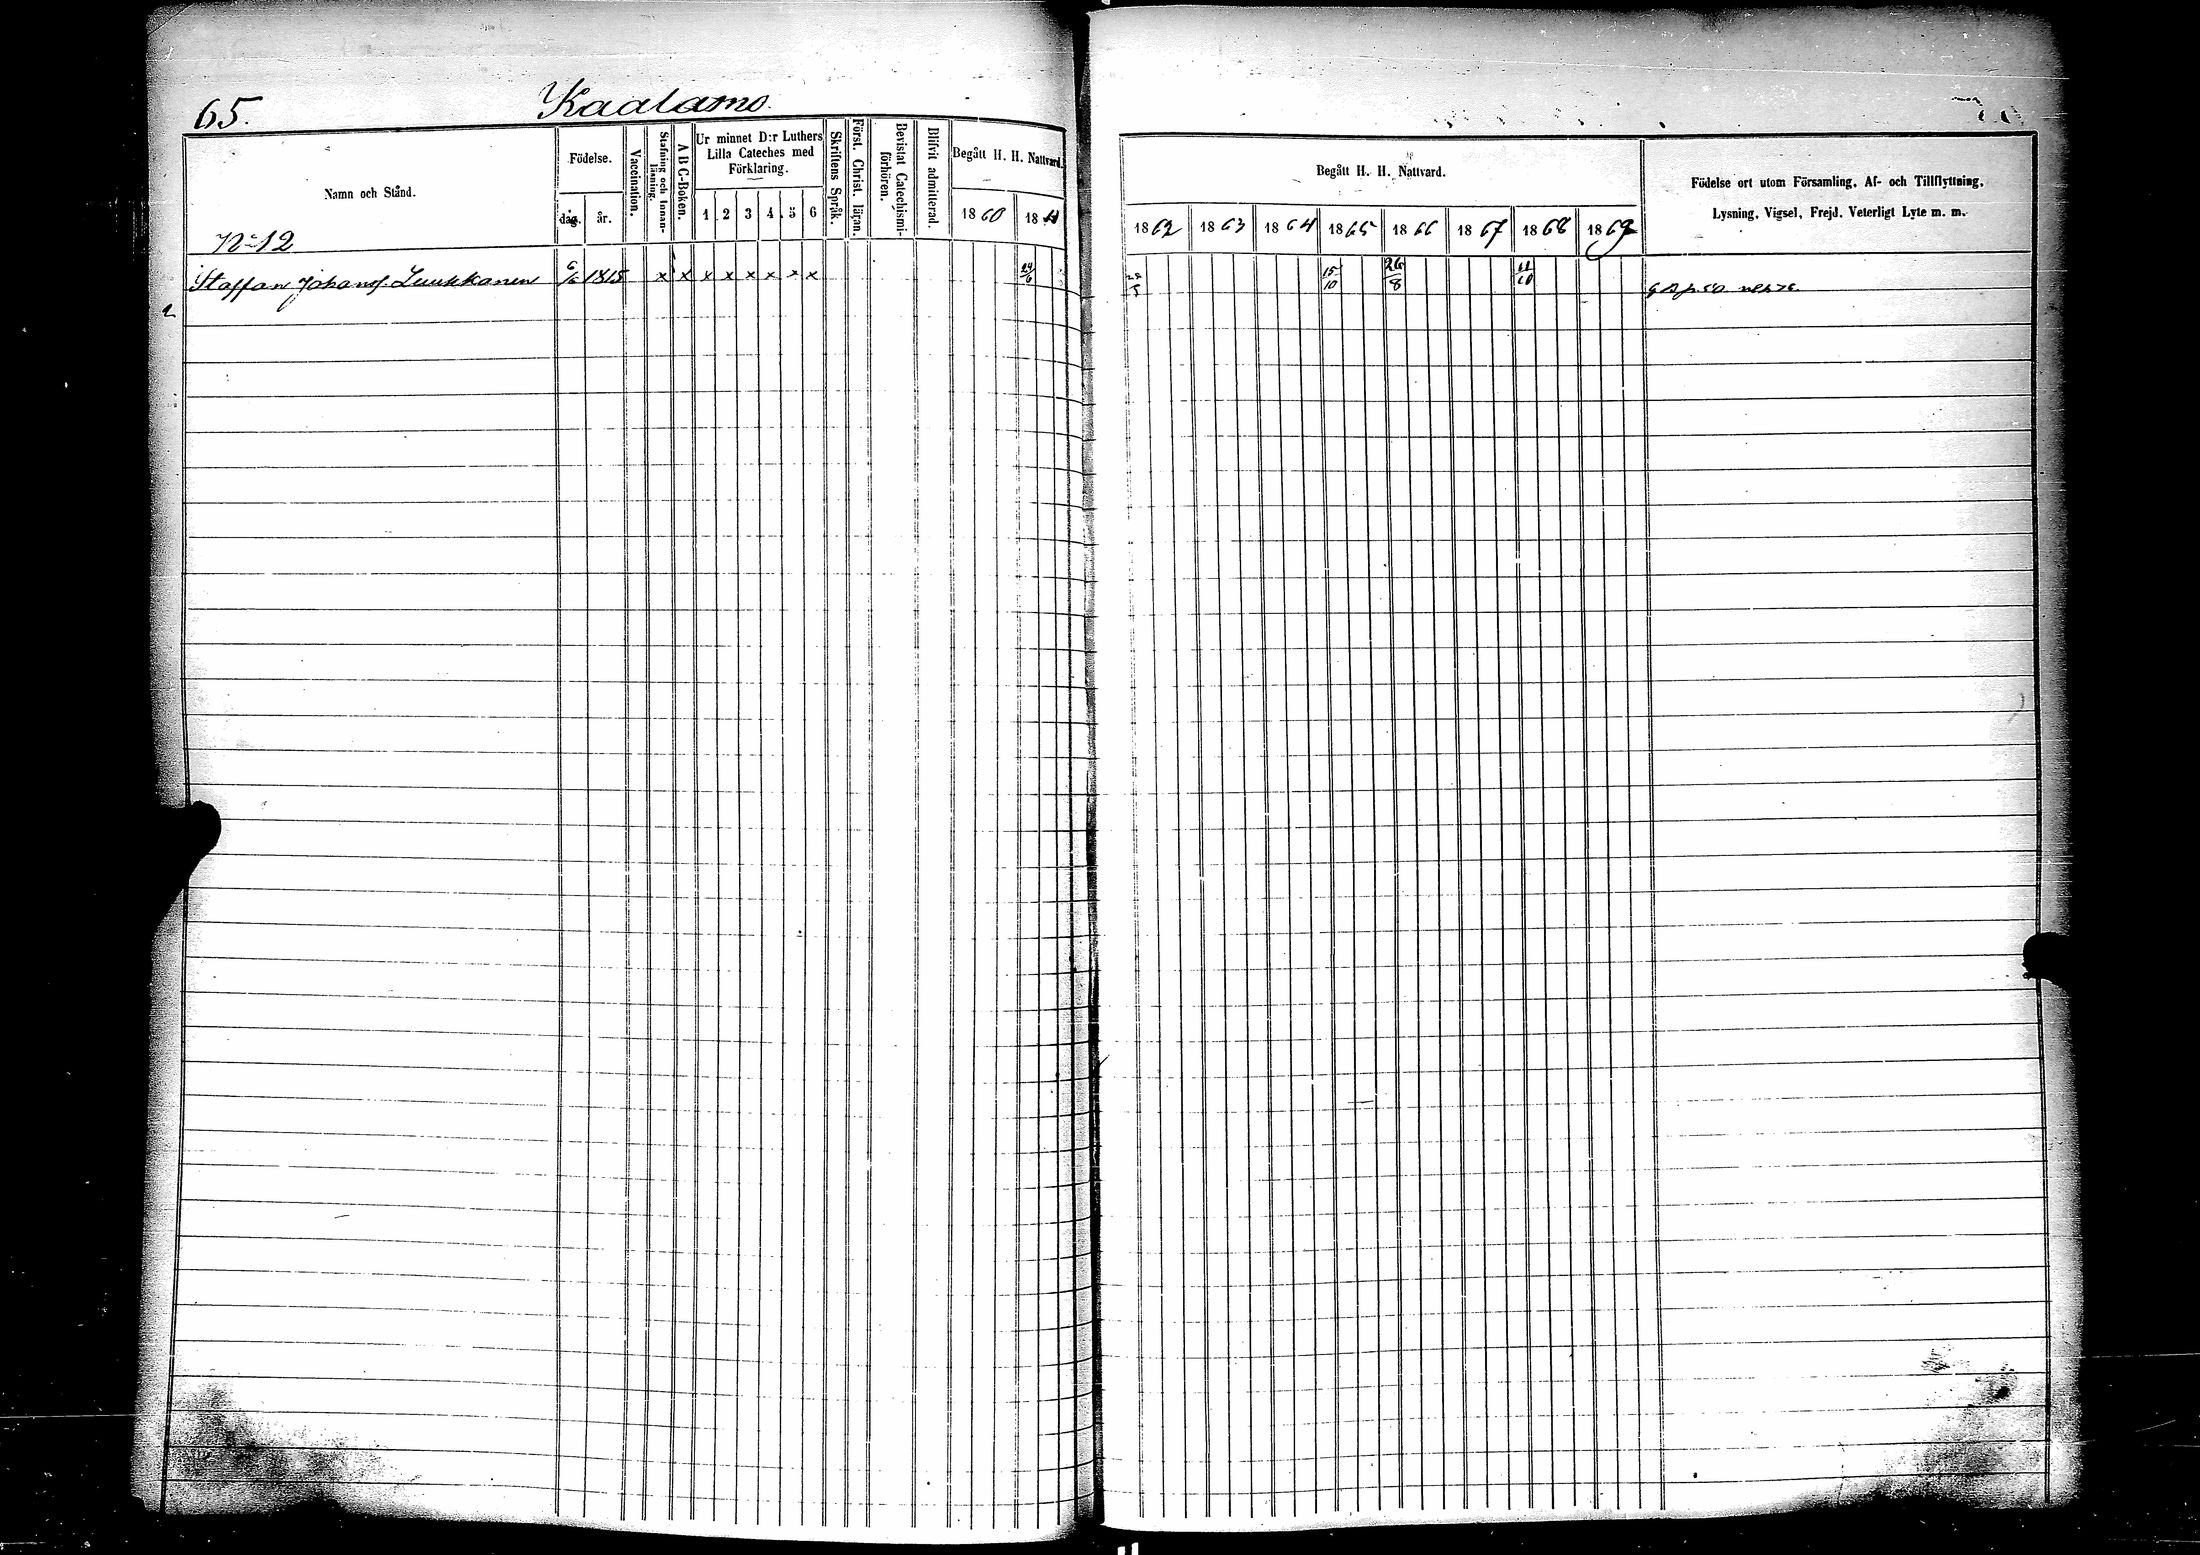 65.
Kaalamo.
Namn och Stånd.
Födelse.
dag.
år.
Vaccination.
Stafning och Innan-
läsning.
A B C-Boken.
Ur minnet D:r Luthers
Lilla Cateches med
Förklaring.
1 2 3 4 5 6
Skriftens Språk.
Först. Christ. läran.
Bevistat Catechismi-
förhören.
Blifvit admitterad.
Begått H. H. Nattvard.
1860
18
Nº 12
Staffan Johansf. Luukkanen 6/6 1815 x x x x x x x x 24/6
Begått H. H. Nattvard.
1862 1863 1864 1865 1866 1867 1868 1869
Födelse ort utom Församling, Af- och Tillflyttning,
Lysning, Vigsel, Frejd, Veterligt Lyte m. m.
15/10 26/8 11/10